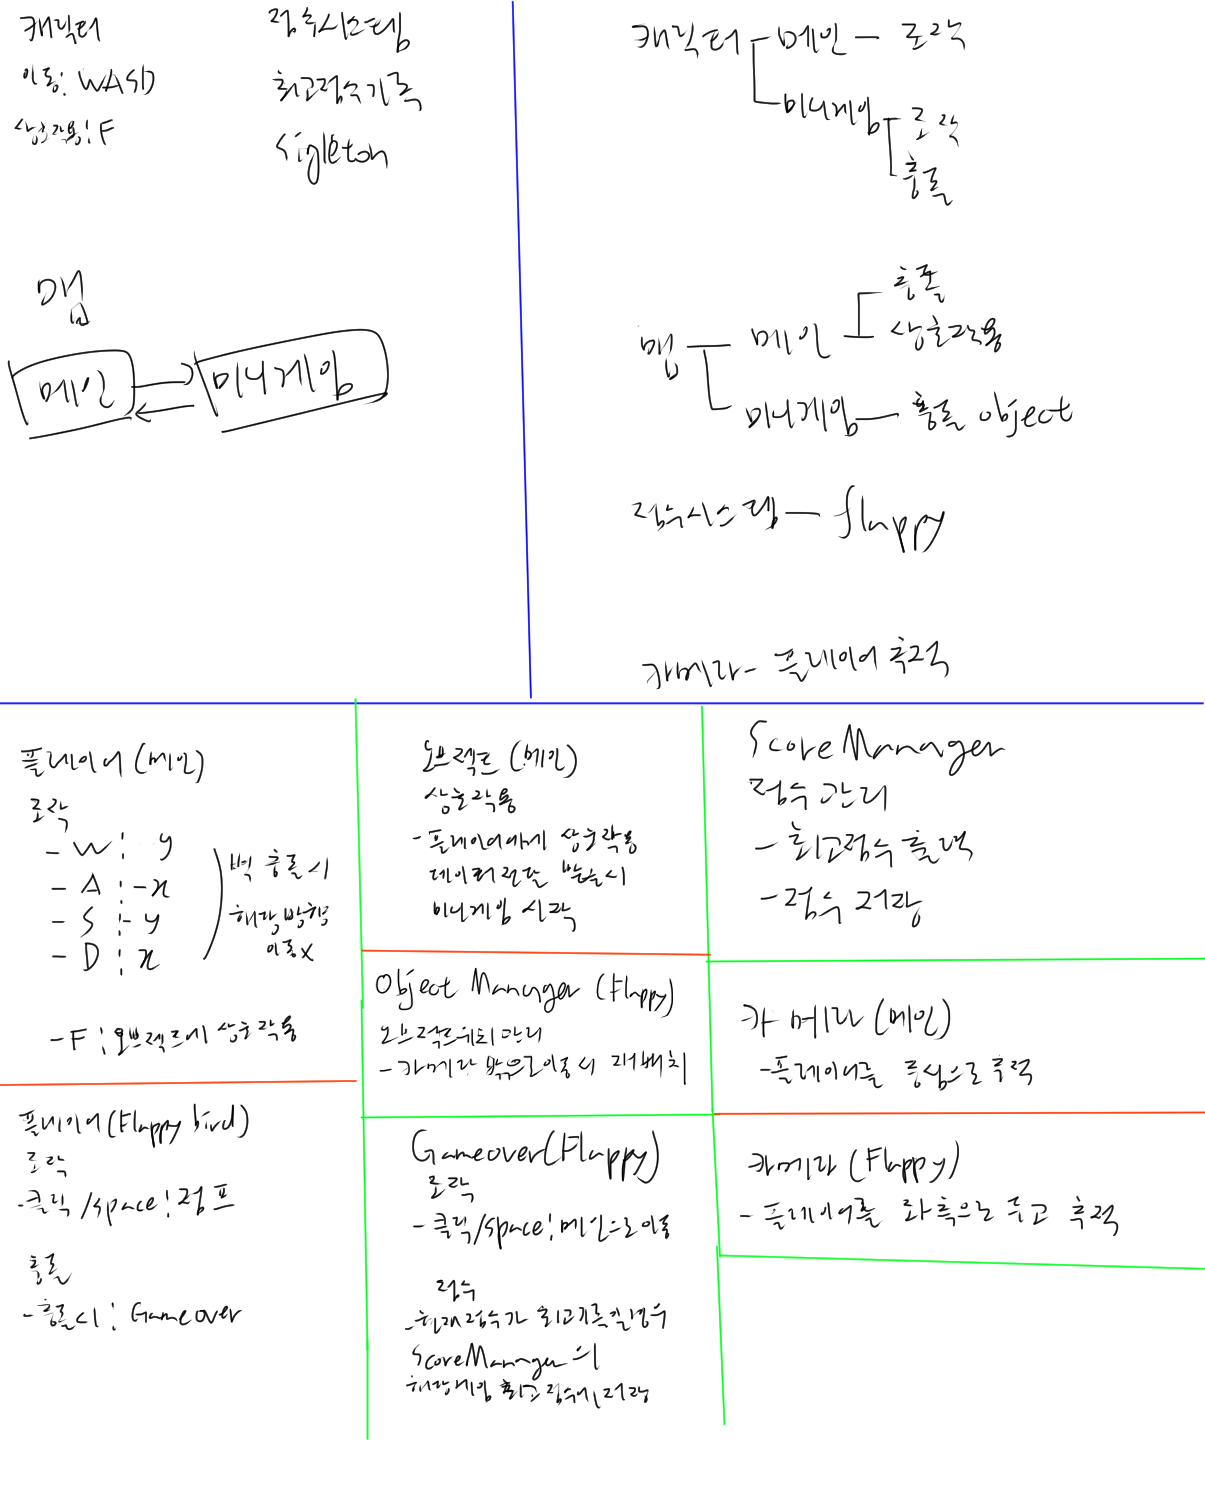 캐릭터
이동: WASD
상호작용: F
점수시스템
최고점수기록
Sigleton
맵
메인
미니게임
캐릭터 - 메인 - 조작
미니게임 - 조작
충돌
맵 - 메인 - 충돌
상호작용
미니게임 - 충돌 object
점수시스템 - flappy
카메라 - 플레이어 추적
플레이어 (메인)
조작
- W : y
- A : -x
- S : -y
- D : x
벽 충돌 시
해당 방향
이동 X
- F : 오브젝트에 상호작용
플레이어 (Flappy bird)
조작
- 클릭 /space : 점프
충돌
- 충돌시 : Gameover
오브젝트 (메인)
상호작용
- 플레이어에게 상호작용
데이터 전달 받을시
미니게임 시작
Object Manager (Flappy)
오브젝트위치 관리
- 카메라 밖으로 이동 시 재배치
Gameover (Flappy)
조작
- 클릭/space : 메인으로 이동
점수
- 현재점수가 최고기록일경우
ScoreManager의
해당게임 최고점수에 저장
Score Manager
점수 관리
- 최고점수 출력
- 점수 저장
카메라 (메인)
- 플레이어를 중심으로 추적
카메라 (Flappy)
- 플레이어를 좌측으로 두고 추적